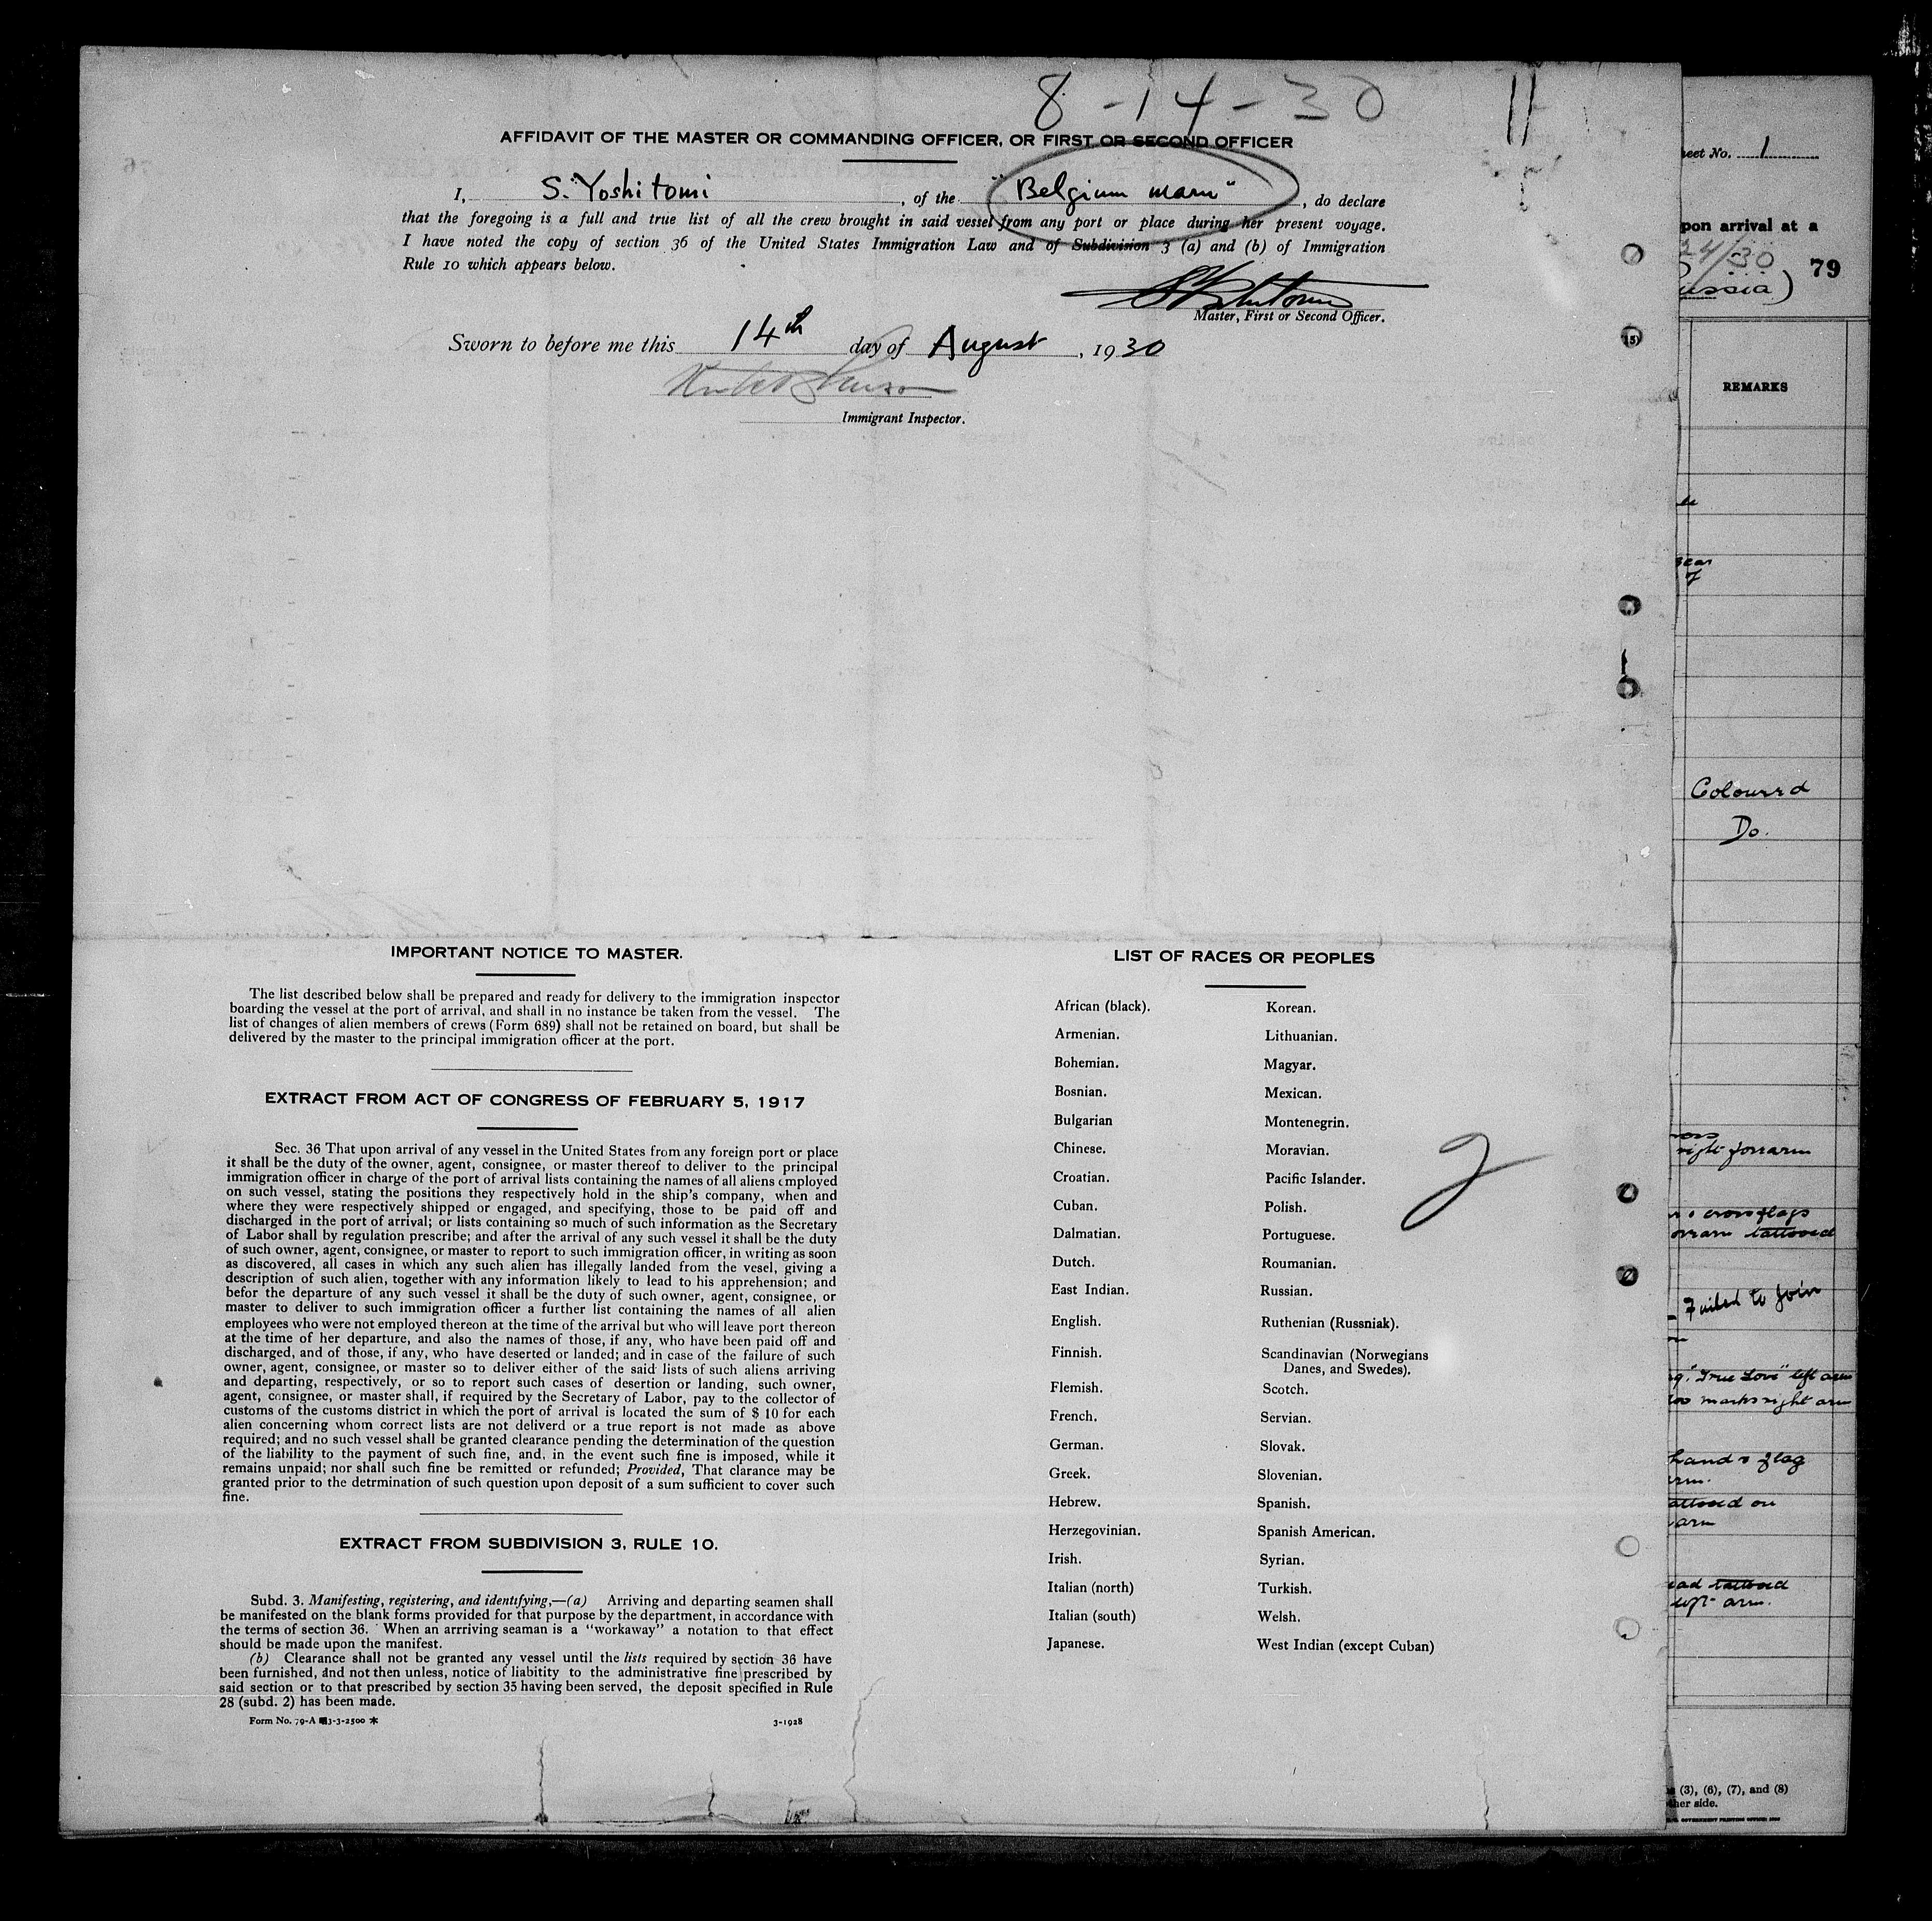 8-14-30
11
AFFIDAVIT OF THE MASTER OR COMMANDING OFFICER, OR FIRST OR SECOND OFFICER
I, S. Yoshitomi, of the "Belgium Maru", do declare
that the foregoing is a full and true list of all the crew brought in said vessel from any port or place during her present voyage.
I have noted the copy of section 36 of the United States Immigration Law and of Subdivision 3 (a) and (b) of Immigration
Rule 10 which appears below.
Master, First or Second Officer.
Sworn to before me this 14th day of August, 1930
Immigrant Inspector.
IMPORTANT NOTICE TO MASTER.
The list described below shall be prepared and ready for delivery to the immigration inspector
boarding the vessel at the port of arrival, and shall in no instance be taken from the vessel. The
list of changes of alien members of crews (Form 689) shall not be retained on board, but shall be
delivered by the master to the principal immigration officer at the port.
EXTRACT FROM ACT OF CONGRESS OF FEBRUARY 5, 1917
Sec. 36 That upon arrival of any vessel in the United States from any foreign port or place
it shall be the duty of the owner, agent, consignee, or master thereof to deliver to the principal
immigration officer in charge of the port of arrival lists containing the names of all aliens employed
on such vessel, stating the positions they respectively hold in the ship's company, when and
where they were respectively shipped or engaged, and specifying, those to be paid off and
discharged in the port of arrival; or lists containing so much of such information as the Secretary
of Labor shall by regulation prescribe; and after the arrival of any such vessel it shall be the duty
of such owner, agent, consignee, or master to report to such immigration officer, in writing as soon
as discovered, all cases in which any such alien has illegally landed from the vesel, giving a
description of such alien, together with any information likely to lead to his apprehension; and
befor the departure of any such vessel it shall be the duty of such owner, agent, consignee, or
master to deliver to such immigration officer a further list containing the names of all alien
employees who were not employed thereon at the time of the arrival but who will leave port thereon
at the time of her departure, and also the names of those, if any, who have been paid off and
discharged, and of those, if any, who have deserted or landed; and in case of the failure of such
owner, agent, consignee, or master so to deliver either of the said lists of such aliens arriving
and departing, respectively, or so to report such cases of desertion or landing, such owner,
agent, consignee, or master shall, if required by the Secretary of Labor, pay to the collector of
customs of the customs district in which the port of arrival is located the sum of $ 10 for each
alien concerning whom correct lists are not deliverd or a true report is not made as above
required; and no such vessel shall be granted clearance pending the determination of the question
of the liability to the payment of such fine, and, in the event such fine is imposed, while it
remains unpaid; nor shall such fine be remitted or refunded; Provided, That clarance may be
granted prior to the detrmination of such question upon deposit of a sum sufficient to cover such
fine.
EXTRACT FROM SUBDIVISION 3, RULE 10.
Subd. 3. Manifesting, registering, and identifying,—(a) Arriving and departing seamen shall
be manifested on the blank forms provided for that purpose by the department, in accordance with
the terms of section 36. When an arrriving seaman is a "workaway" a notation to that effect
should be made upon the manifest.
(b) Clearance shall not be granted any vessel until the lists required by section 36 have
been furnished, and not then unless, notice of liabitity to the administrative fine prescribed by
said section or to that prescribed by section 35 having been served, the deposit specified in Rule
28 (subd. 2) has been made.
Form No. 79-A 3-3-2500 *
3-1928
LIST OF RACES OR PEOPLES
African (black).
Armenian.
Bohemian.
Bosnian.
Bulgarian
Chinese.
Croatian.
Cuban.
Dalmatian.
Dutch.
East Indian.
English.
Finnish.
Flemish.
French.
German.
Greek.
Hebrew.
Herzegovinian.
Irish.
Italian (north)
Italian (south)
Japanese.
Korean.
Lithuanian.
Magyar.
Mexican.
Montenegrin.
Moravian.
Pacific Islander.
Polish.
Portuguese.
Roumanian.
Russian.
Ruthenian (Russniak).
Scandinavian (Norwegians
Danes, and Swedes).
Scotch.
Servian.
Slovak.
Slovenian.
Spanish.
Spanish American.
Syrian.
Turkish.
Welsh.
West Indian (except Cuban)
2
eet No. 1
pon arrival at a
24/30
ussia)
79
REMARKS
scar
of
Coloured
Do.
right forearm
cross flags
tattooed
Failed to join
"True Love" left arm
marks right arm
hand & flag
arm.
on
arm
tattooed
left arm.
(3), (6), (7), and (8)
ther side.
GOVERNMENT PRINTING OFFICE